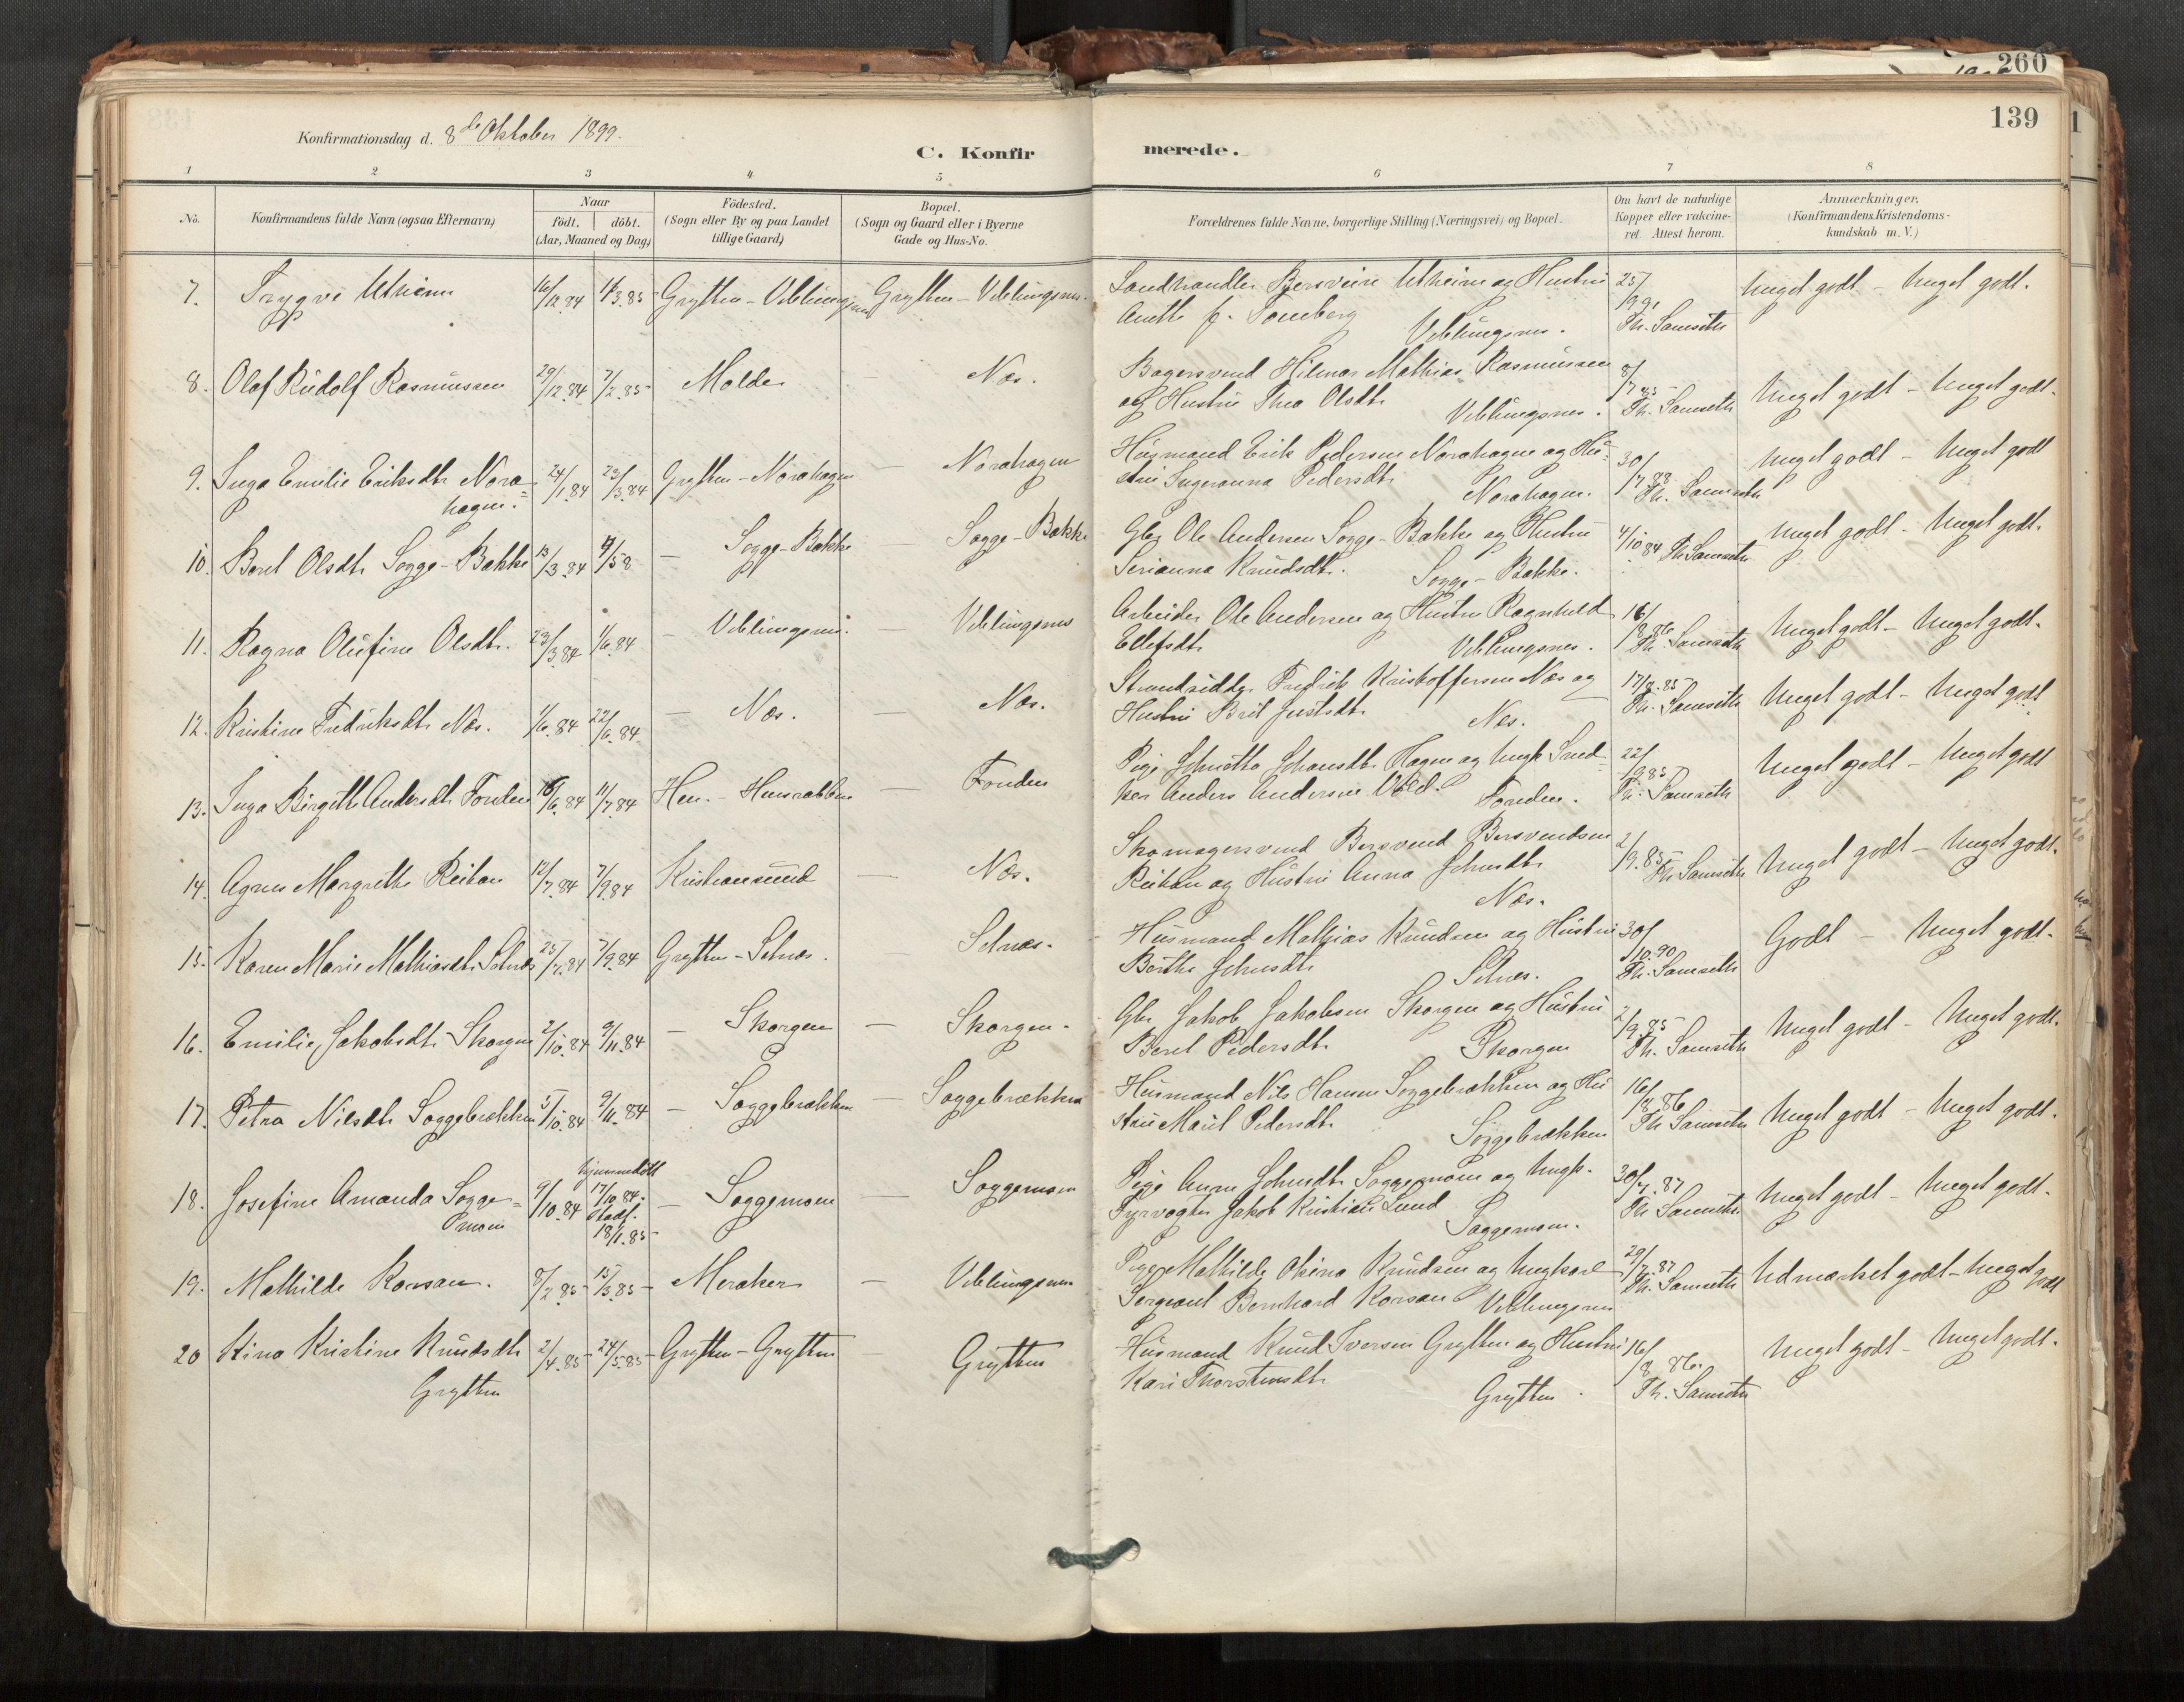 260
139
Konfirmationsdag d. 8de Oktober 1899.
C. Konfirmerede.
1 2 3 4 5 6 7 8
No. Konfirmandens fulde Navn (ogsaa Efternavn) Naar födt, döbt. (Aar, Maaned og Dag) Födested. (Sogn eller By og paa Landet tillige Gaard) Bopæl. (Sogn og Gaard eller i Byerne Gade og Hus-No. Forældrenes fulde Navne, borgerlige Stilling (Næringsvei) og Bopæl. Om havt de naturlige Kopper eller vakcineret. Attest herom. Anmærkninger. (Konfirmandens Kristendomskundskab m. V.)
7. Trygve Utheim 16/12.84 3.85 Grytten - Veblungsnes Grytten - Veblungsnes. Landhandler Utheim og Hustru 25/9 91 Meget godt - Meget godt.
f. Toneberg Veblungsnes. Th. Samseth
8. Olaf Rudolf Rasmussen 29/12.84 7/2.85 Molde — Næs. Bagersvend Hilmar Mathias Rasmussen 8/7 Meget godt - Meget godt.
og Hustru Thea Olsdtr Veblungsnes. Th. Samseth
9. Inga Emilie Eriksdtr Norahagen. 24/1.84 23/3.84 Grytten - Norahagen — Norahagen Husmand Erik Pedersen Norahagen og Hustru 30/7 88 Meget godt - Meget godt
Ingeranna Pedersdtr Norahagen. Th. Samseth
10. Beret Olsdtr Sogge-Bakke 13/3.84 — Sogge-Bakke Sogge-Bakke Gbr Ole Andersen Sogge-Bakke og Hustru 4/10 84 Th Samseth Meget godt - Meget godt.
Serianna Knudsdtr. Sogge-Bakke.
11. Ragna Olufine Olsdtr. 23/3.84 1/6.84 — Veblungsnes. — Veblungsnes Arbeider Ole Andersen og Hustru Ragnhild 16/8 86 Meget godt - Meget godt.
Ellefsdtr Veblungsnes. Th. Samseth
12. Kristine Fredriksdtr Næs. 1/6.84 22/6.84 — Næs. — Næs. Strandsidder Fredrik Kristoffersen Næs og 17/8.85 Meget godt - Meget godt
Hustru Brit Justsdtr. Næs. Th. Samseth
13. Inga Birgitte Andersdtr Fonden 16/6.84 11/7.84 Hen. - — Fonden Pige Johnetta Hagen og Ungk Snedker 22/9 85 Meget godt - Meget godt
Anders Andersen Vold. Fonden. Th. Samseth
14. Agnes Margrethe Reitan 12/7.84 7/9.84 Kristiansund — Næs. Skomagersvend Bersvend Bersvendsen 2/9.85 Meget godt - Meget godt.
Reitan og Hustru Anna Johnsdtr Næs. Th Samseth
15. Karen Marie Mathiasdtr Setnæs 25/7.84 7/9.84 Grytten - Setnæs. Setnæs. Husmand Mathias Knudsen og Hustru 30/10.90 Godt - Meget godt.
Berthe Johnsdtr Setnæs. Th. Samseth
16. Emilie Jakobsdtr Skorgen 2/10.84 9/11.84 — Skorgen — Skorgen. Gbr Jakob Jakobsen Skorgen og Hustru 2/9.85 Meget godt - Meget godt.
Beret Pedersdtr Skorgen Th. Samseth
17. Petra Nilsdtr Soggebrækken 5/10.84 9/11.84 — Soggebrækken — Soggebrækken Husmand Nils Hansen Soggebrækken og Hustru 16/8.86 Meget godt - Meget godt.
Marit Pedersdtr Soggebrækken Th Samseth
18. Josefine Amanda Soggemoen 9/10.84 hjemmedöbt 17/10.84. Stadf. 18/1.85 — Soggemoen Soggemoen Pige Anne Johnsdtr Soggemoen og Ungk. 30/7.87 Meget godt - Meget godt.
Fyrvogter Jakob Kristian Lund Soggemoen. Th Samseth
19. Mathilde Korsan. 8/2.85 15/3.85 — Meraker — Veblungsnes Pige Mathilde Oline Knudsen og Ungkarl 29/7.87 Udmærket godt - Meget godt
Sergeant Bernhard Korsan Veblungsnes Th. Samseth
20 Stina Kristine Knudsdtr Grytten 2/4.85 24/5.85 Grytten - Grytten — Grytten Husmand Knud Iversen Grytten og Hustru 16/8 86. Meget godt - Meget godt.
Kari Thorstensdtr Grytten. Th. Samseth